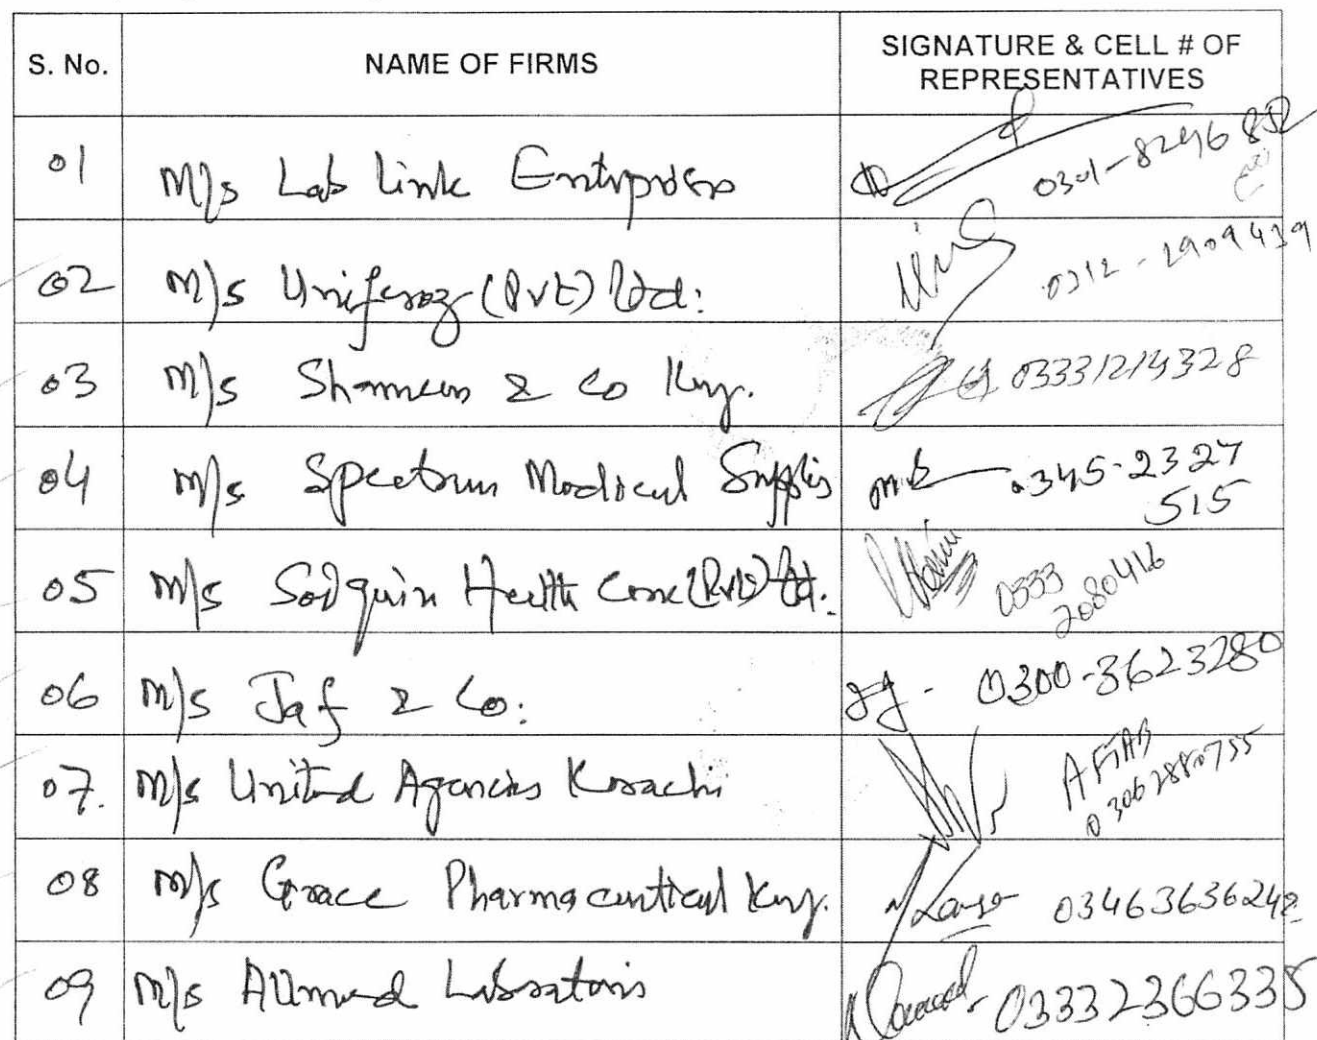 S. No. NAME OF FIRMS SIGNATURE & CELL # OF
REPRESENTATIVES
01 M/s Lab Link Enterprises 0301-8246852
02 M/s Uniferoz (Pvt) Ltd: 0312-2909439
03 M/s & Co Key. 03331214328
04 M/s Spectrum Medical Supplies 0345-2327
515
05 M/s Health Care (Pvt) Ltd. 0333
2080416
06 M/s Jaf & Co: 0300-3623280
07. M/s United Agencies Karachi AFTAB
03062880755
08 M/s Grace Pharmaceutical 03463636242
09 M/s Allmed Laboratories 03332366335